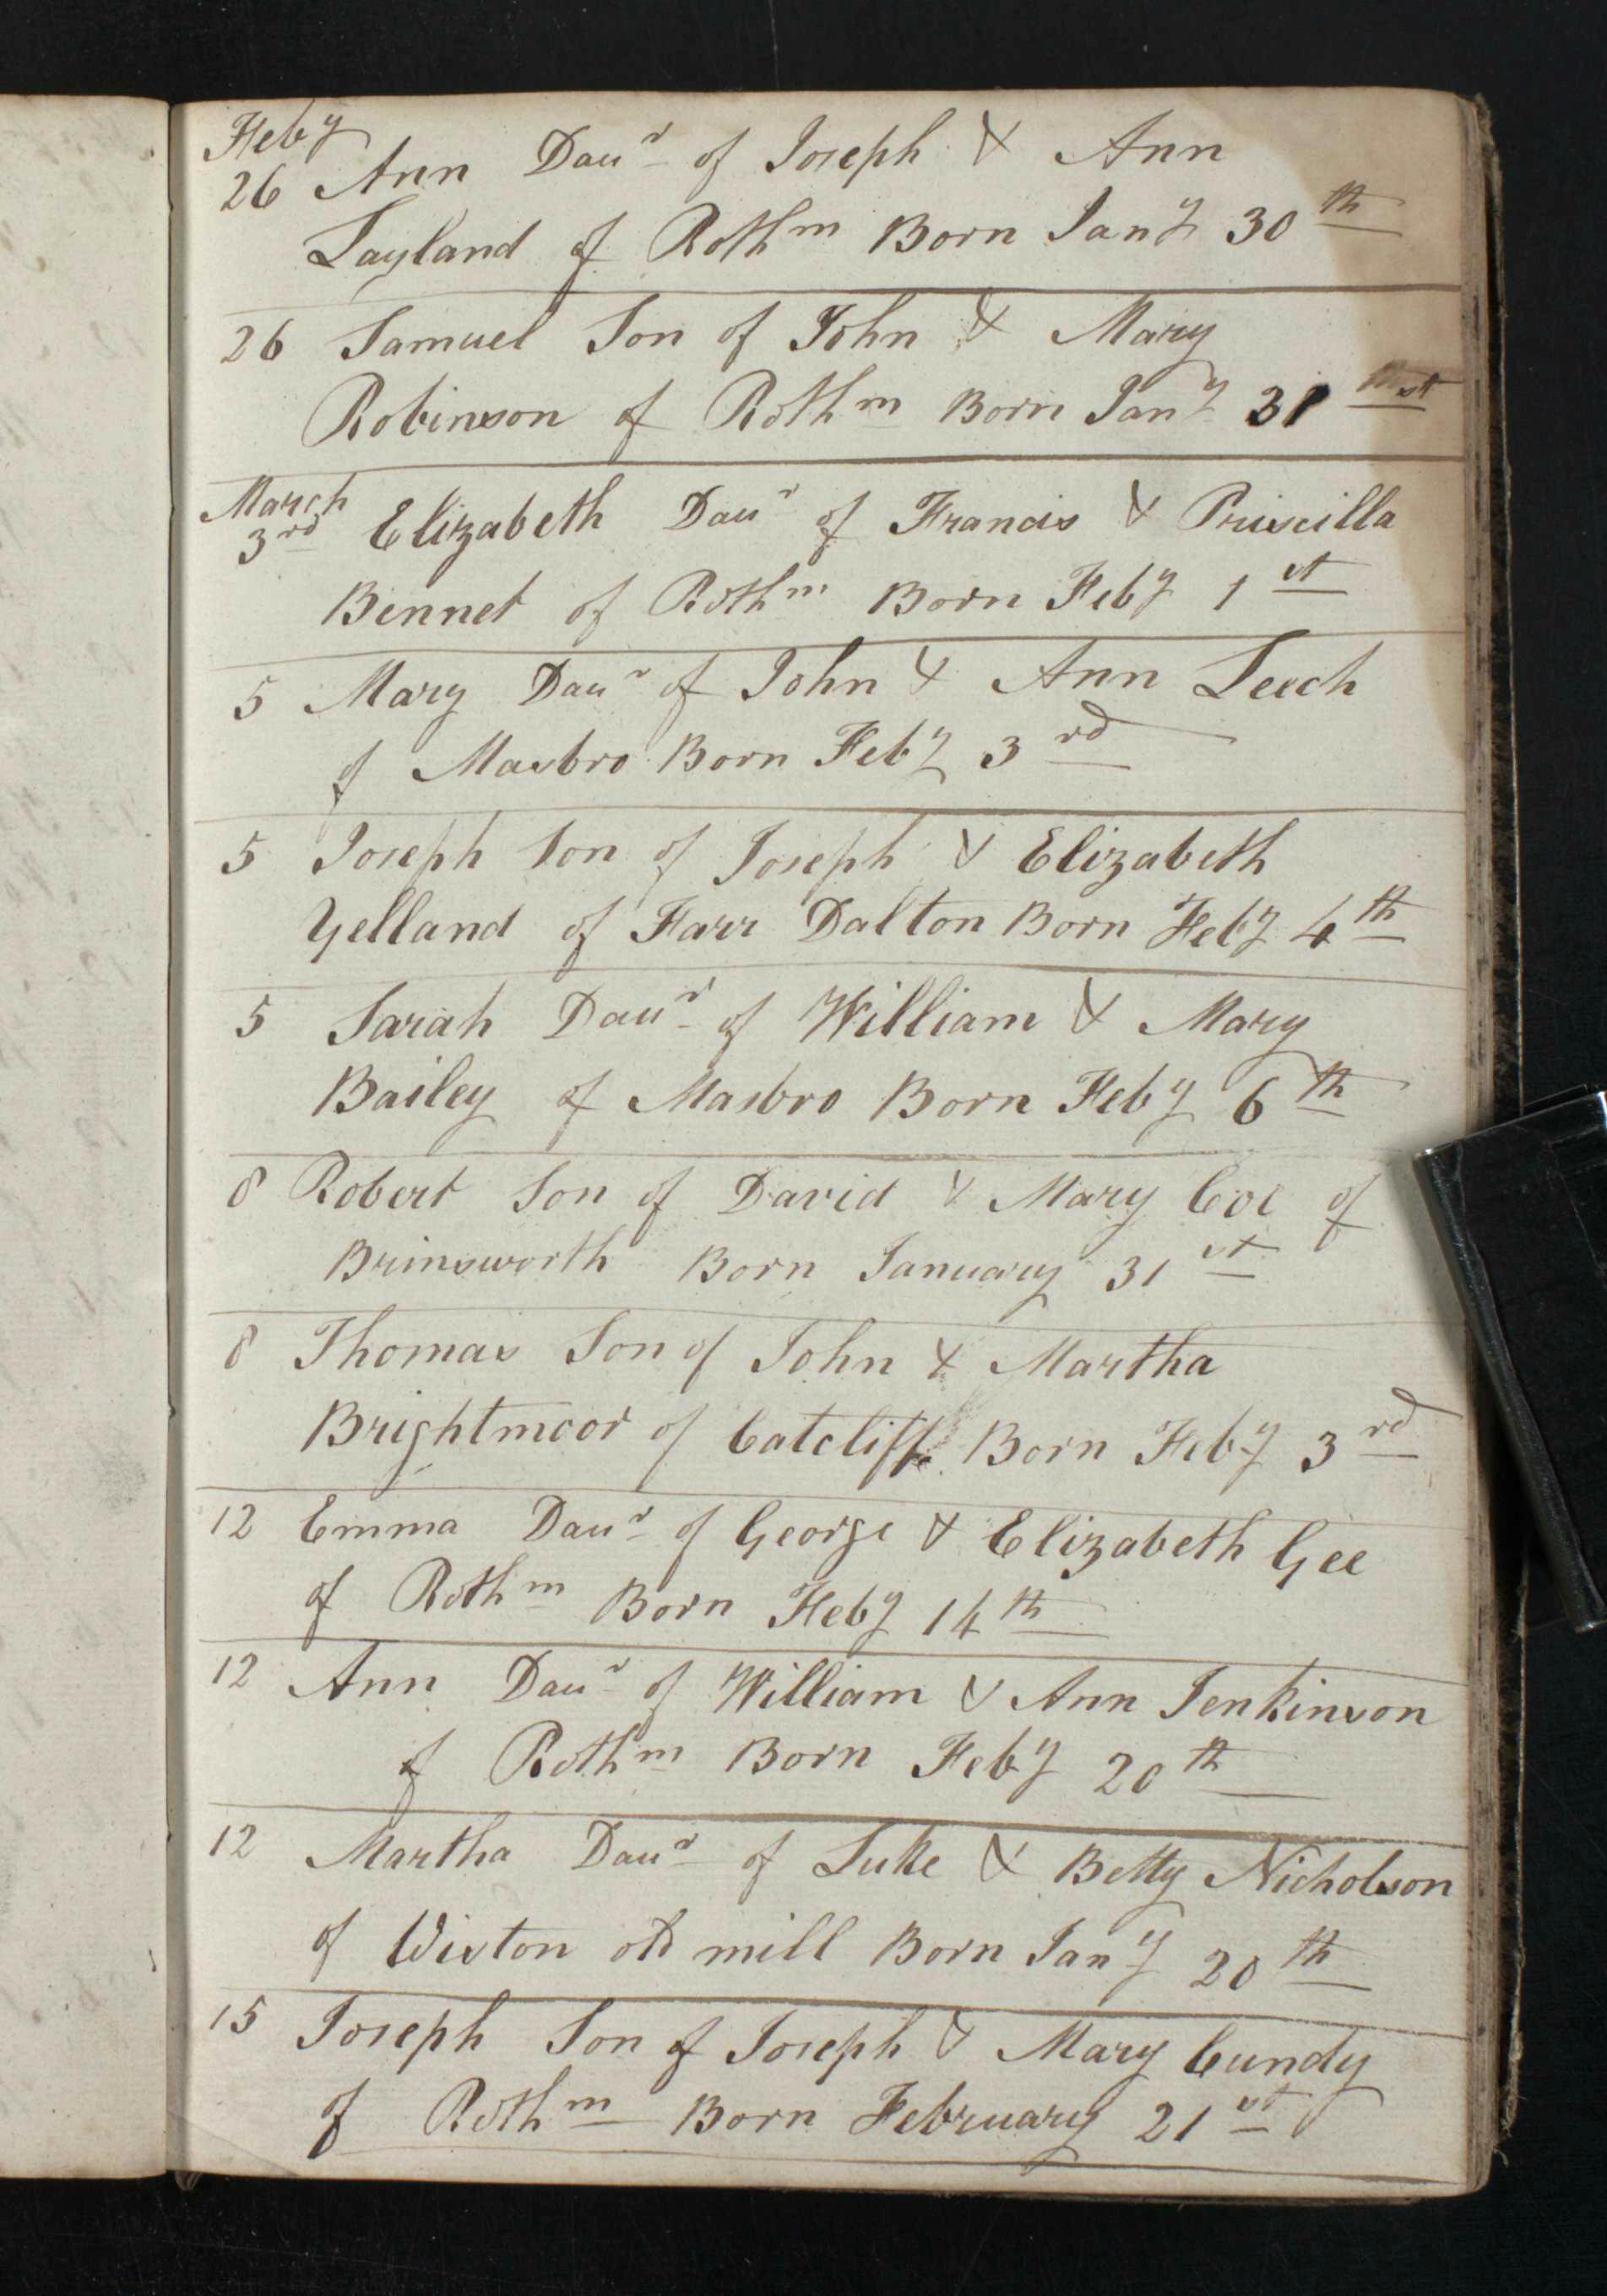 Feby
26 Ann Daur of Joseph & Ann
Layland of Rothm Born Jany 30th
26 Samuel Son of John & Mary
Robinson of Rothm Born Jany 31st
March
3rd Elizabeth Daur of Francis & Priscilla
Bennet of Rothm Born Feby 1st
5 Mary Daur of John & Ann Leech
of Masbro Born Feby 3rd
5 Joseph Son of Joseph & Elizabeth
Yelland of Farr Dalton Born Feby 4th
5 Sarah Daur of William & Mary
Bailey of Masbro Born Feby 6th
8 Robert Son of David & Mary Coe of
Brinsworth Born January 31st
8 Thomas Son of John & Martha
Brightmoor of Catcliff Born Feby 3rd
12 Emma Daur of George & Elizabeth Gee
of Rothm Born Feby 14th
12 Ann Daur of William & Ann Jenkinson
of Rothm Born Feby 20th
12 Martha Daur of Luke & Betty Nicholson
of Wiston old mill Born Jany 20th
15 Joseph Son of Joseph & Mary Cundy
of Rothm Born February 21st